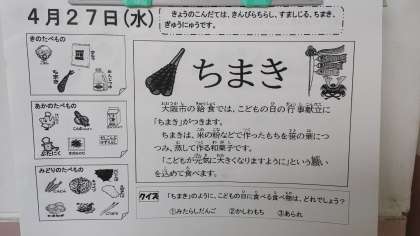 4月27日(水)
きょうのこんだては、きんぴらちらし、すましじる、ちまき、
ぎゅうにゅうです。
きのたべもの
あかのたべもの
こんぶ
ぶたにく
みどりのたべもの
ちまき
大阪市の給食では、こどもの日の行事献立に
「ちまき」がつきます。
ちまきは、米の粉などで作ったもちを笹の葉に
つつみ、蒸して作る和菓子です。
「こどもが元気に大きくなりますように」という願い
を込めて食べます。
クイズ 「ちまき」のように、こどもの日に食べる食べ物は、どれでしょう?
①みたらしだんご ②かしわもち ③あられ